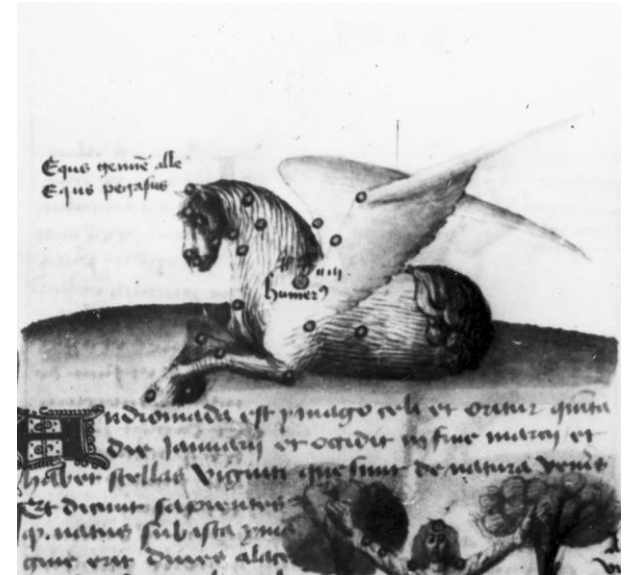 Equs pegasus
humerꝰ
Andromada est ymago celi et oritur quinta
die Januarij et occidit in fine marcij et
habet stellas viginti que sunt de natura veneris
Et dicunt sapientes
q. natus sub ista yma
gine erit diues